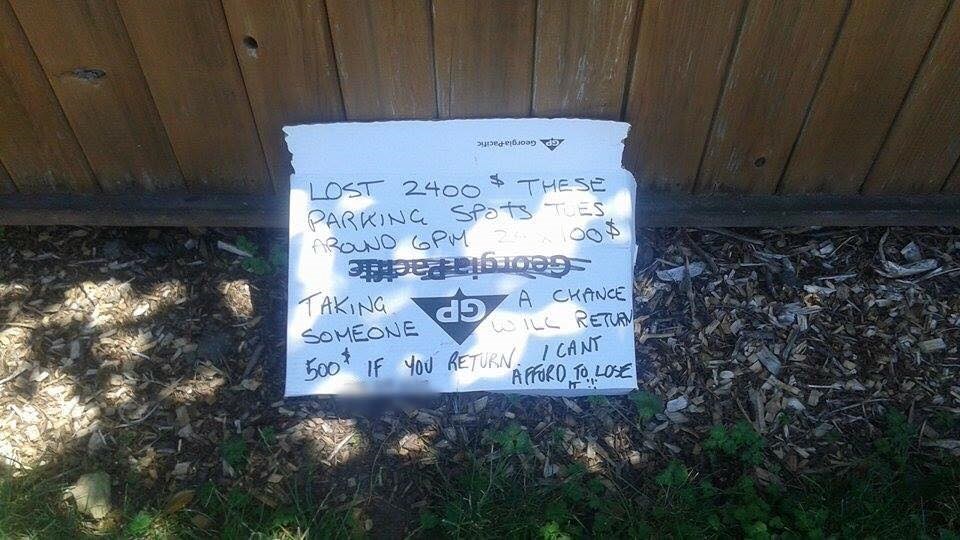 Georgia-Pacific GP
LOST 2400 $ THESE
PARKING SPOTS TUES
AROUND 6PM 24 x 100$
Georgia-Pacific
TAKING GP A CHANCE
SOMEONE WILL RETURN
500$ IF YOU RETURN, I CANT
AFFORD TO LOSE
IT!!!